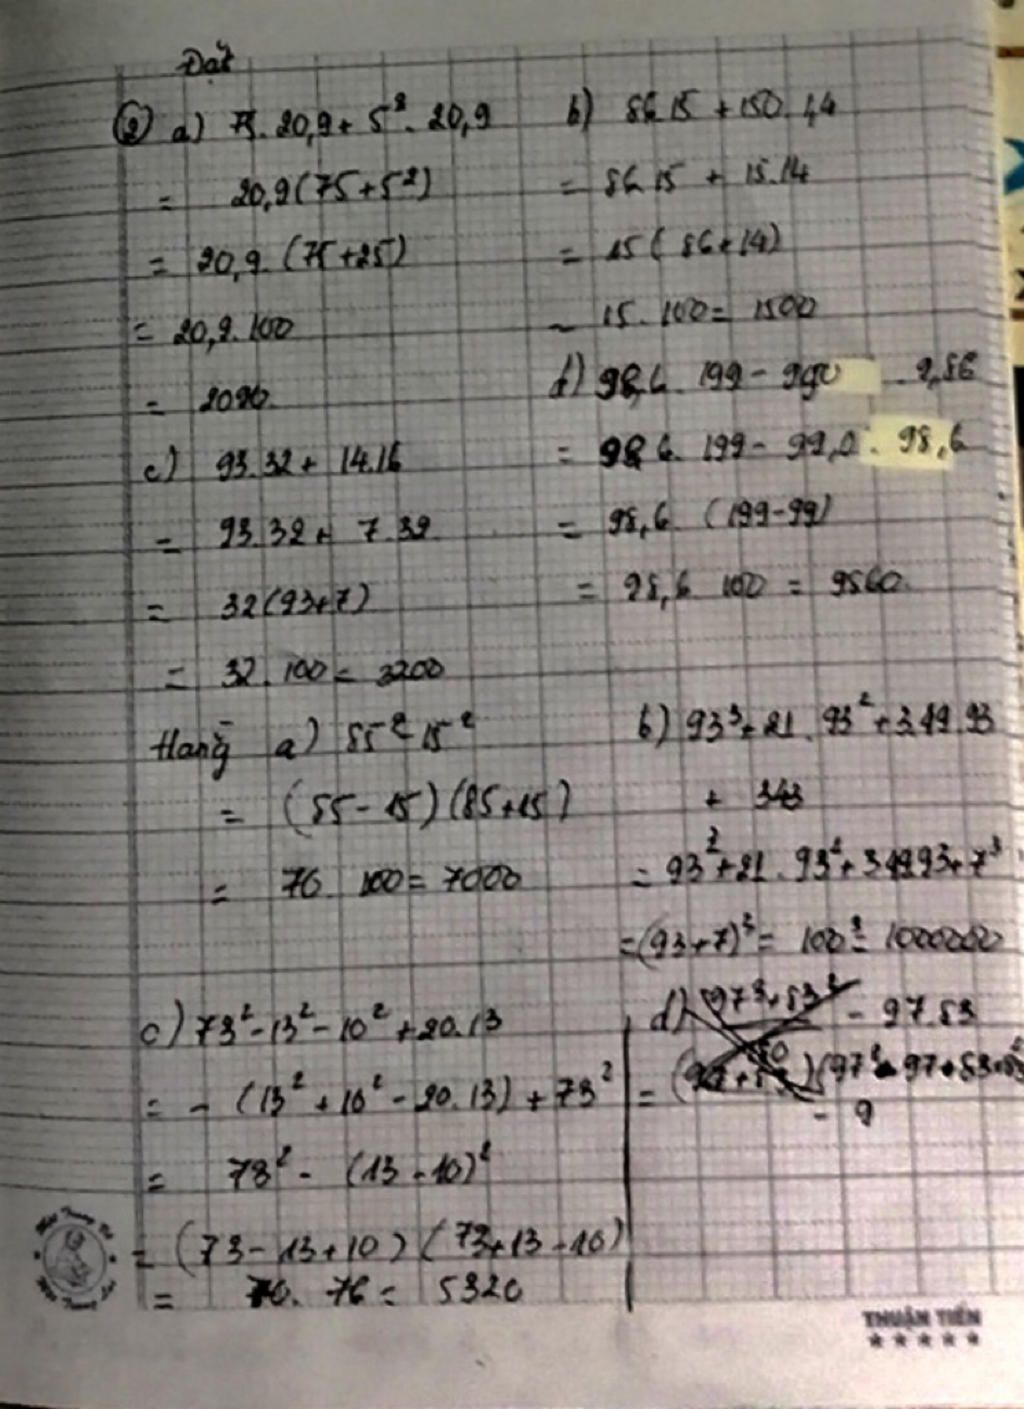 Đặt
② a) 75. 20,9 + 5². 20,9
= 20,9(75+5²)
= 20,9. (75+25)
= 20,9. 100
= 2090.
b) 86.15 + 150. 1,4
= 86.15 + 15.14
= 15 ( 86+14)
= 15. 100 = 1500
c) 93.32 + 14.16
= 93.32 + 7.32
= 32(93+7)
= 32. 100 = 3200
d) 98,6. 199 - 990 . 9,86
= 98,6. 199 - 99,0. 98,6
= 98,6. (199-99)
= 98,6 100 = 9860.
Hang̃ a) 85² - 15²
= (85-15)(85+15)
= 70 100 = 7000
b) 93³+21. 93²+3.49.93
+ 343
= 93²+21. 93²+3.49.93+7³
=(93+7)³ = 100³ = 1000000
c) 73²-13²-10²+20.13
= - (13²+10²-20.13) + 73²
= 73² - (13-10)²
= (73-13+10) (73+13-10)
= 70. 76 = 5320
d) 97³+83³ - 97.83
THUẬN TIẾN